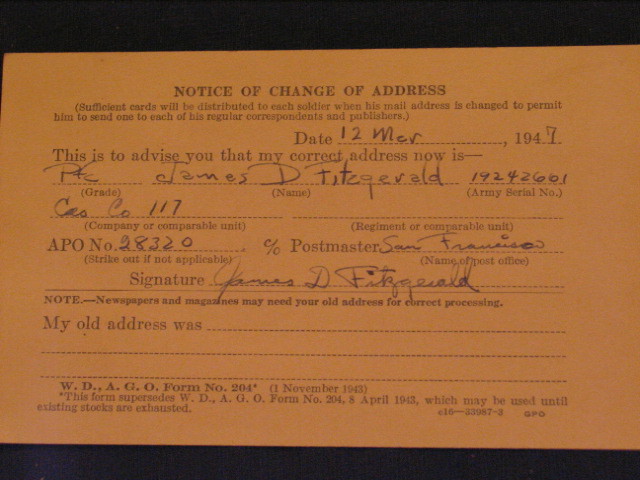 NOTICE OF CHANGE OF ADDRESS
(Sufficient cards will be distributed to each soldier when his mail address is changed to permit
him to send one to each of his regular correspondents and publishers.)
Date 12 Mar, 1947
This is to advise you that my correct address now is—
Pfc James D Fitzgerald 19242601
(Grade) (Name) (Army Serial No.)
Cas Co 117
(Company or comparable unit) (Regiment or comparable unit)
APO No. 28320 % Postmaster San Francisco
(Strike out if not applicable) (Name of post office)
Signature James D Fitzgerald
NOTE.—Newspapers and magazines may need your old address for correct processing.
My old address was
W. D., A. G. O. Form No. 204* (1 November 1943)
*This form supersedes W. D., A. G. O. Form No. 204, 8 April 1943, which may be used until
existing stocks are exhausted.
c16—33987-2 GPO